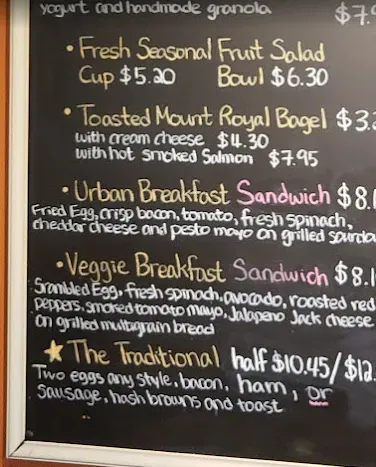 yogurt and handmade granola $7.9
• Fresh Seasonal Fruit Salad
Cup $5.20 Bowl $6.30
• Toasted Mount Royal Bagel $3.2
with cream cheese $4.30
with hot smoked Salmon $7.95
• Urban Breakfast Sandwich $8.1
Fried Egg, crisp bacon, tomato, fresh spinach,
cheddar cheese and pesto mayo on grilled sourdo
• Veggie Breakfast Sandwich $8.1
Srambled Egg, fresh spinach, avocado, roasted red
peppers, smoked tomato mayo, Jalapeno Jack cheese
on grilled multigrain bread
★ The Traditional half $10.45/$12.
Two eggs any style, bacon, ham, or
sausage, hash browns and toast